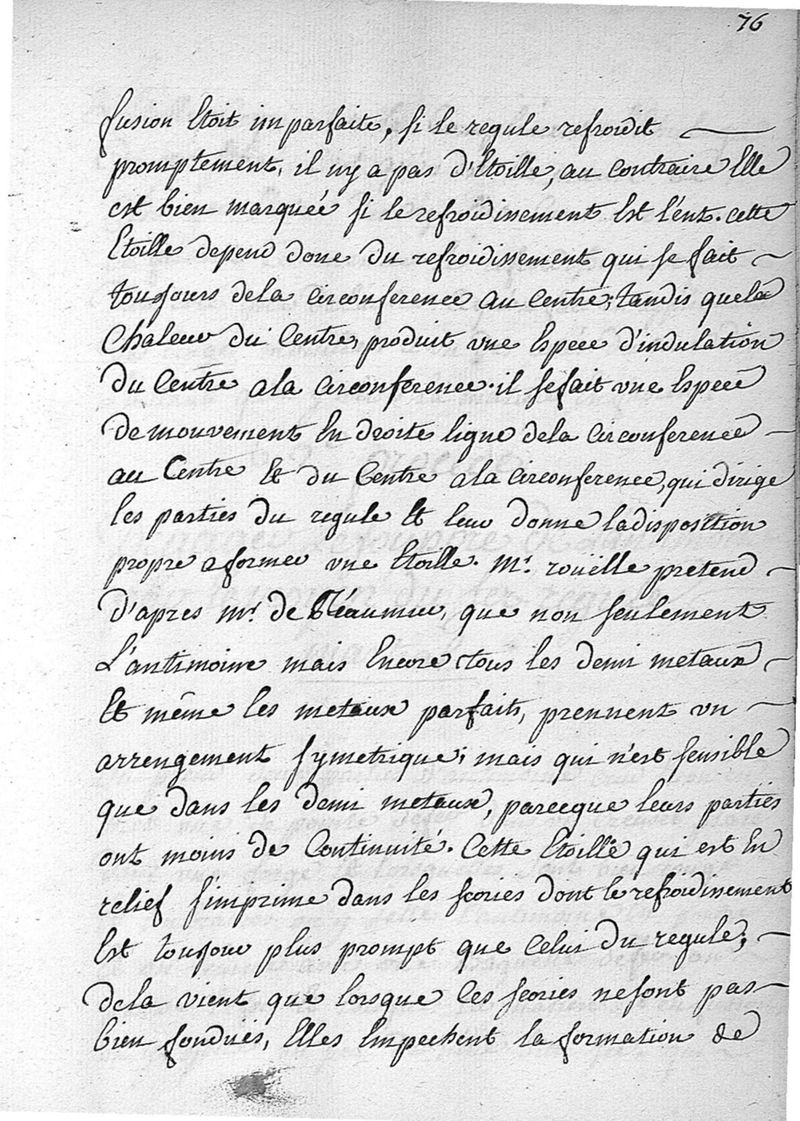 76
fusion Etoit imparfaite, si le regule refroidit
promptement, il ny a pas d'Etoille, au contraire Elle
est bien marqueé si le refroidissement Est lent. cette
Etoille depend donc du refroidissement qui se fait
toujours dela circonference au centre; tandis quela
Chaleur du Centre, produit vne Espece d'indulation
du Centre ala circonference. il sefait vne Espece
de mouvement En droite ligne dela circonference
au Centre Et du Centre ala circonference, qui dirige
les parties du regule Et leur donne ladisposition
propre aformer vne Etoille. Mr. roüelle pretend
d'apres mr. de Réaumur, que non seulement
L'antimoine mais Encore tous les demi metaux
Et même les metaux parfaits, prennent vn
arrengement symetrique; mais qui n'est sensible
que dans les demi metaux, parceque leurs parties
ont moins de Continuité. Cette Etoille qui est En
relief s'imprime dans les scories dont le refroidissement
Est toujour plus prompt que celui du regule;
dela vient que lorsque les scories nesont pas
bien fondües, Elles Empechent la formation de